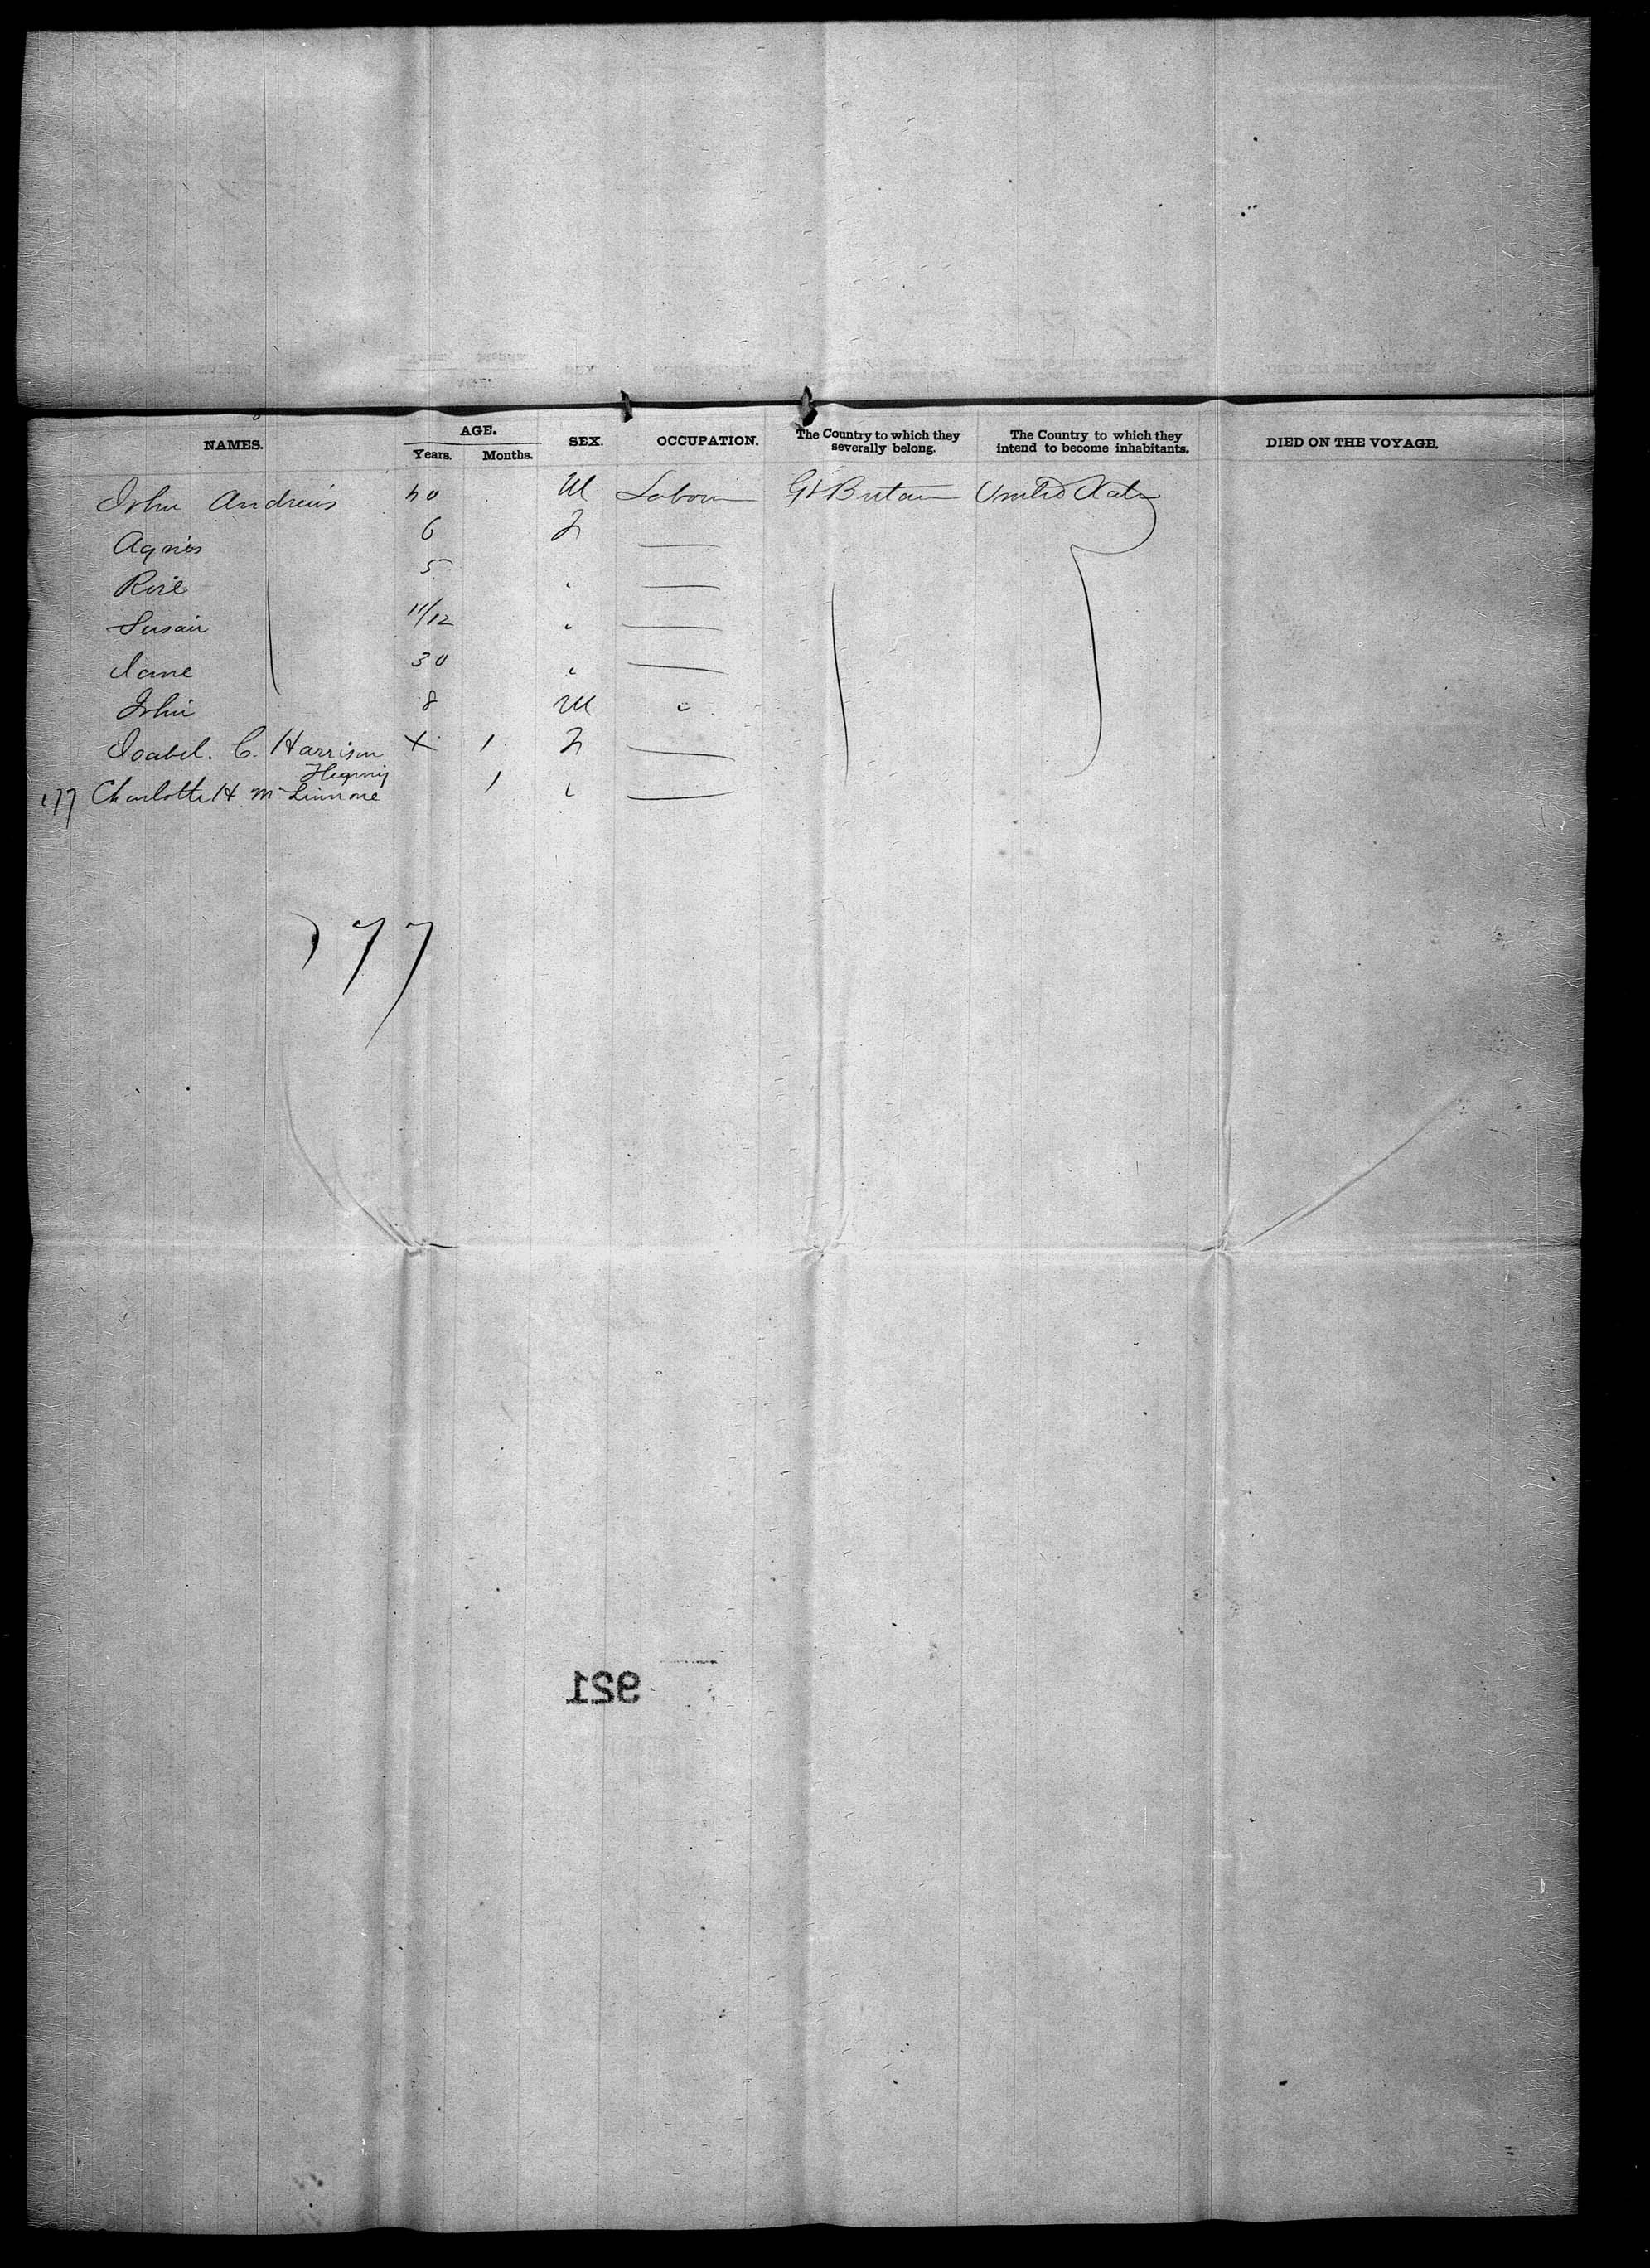 NAMES. AGE. SEX. OCCUPATION. The Country to which they severally belong. The Country to which they intend to become inhabitants. DIED ON THE VOYAGE.
Years. Months.
John Andrews 40 M Labour Gt Britain United States
Agnes 6 F
Rose 5 "
Susan 11/12 "
Jane 30 "
John 8 M "
Isabel. C. Harrison X 1 F
177 Charlotte H Mc 1 "
177
921